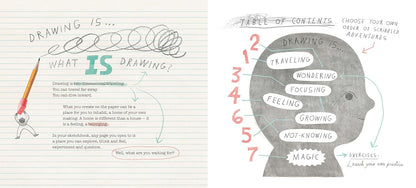 DRAWING IS...
WHAT IS DRAWING?
You can travel far away.
You can dive inward.
What you create on the paper can be a
place for you to inhabit, a home of your own
making. A home is different than a house — it
is a feeling, a belonging.
In your sketchbook, any page you open is
a place you can explore, think and feel,
experiment and question.
Well, what are you waiting for?
TABLE OF CONTENTS
CHOOSE YOUR OWN
ORDER OF SCRIBBLED
ADVENTURES
DRAWING IS...
2
TRAVELING
1
WONDERING
3
FOCUSING
4
FEELING
6
GROWING
5
NOT-KNOWING
7
MAGIC
EXERCISES: